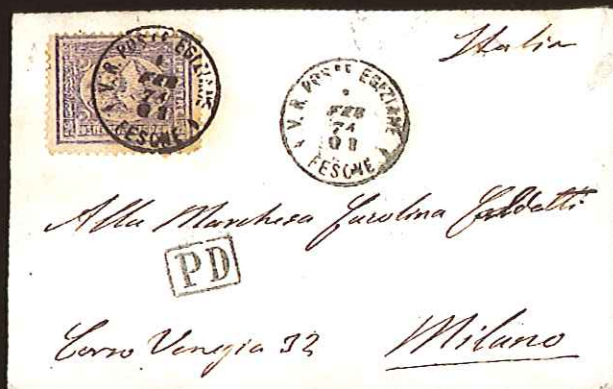 Italia
V. R. POSTE EGIZIANE
FEB
74
FESCNE
V. R. POSTE EGIZIANE
FEB
74
FESCNE
Alla Marchesa Carolina
PD
Corso Venezia 32 Milano